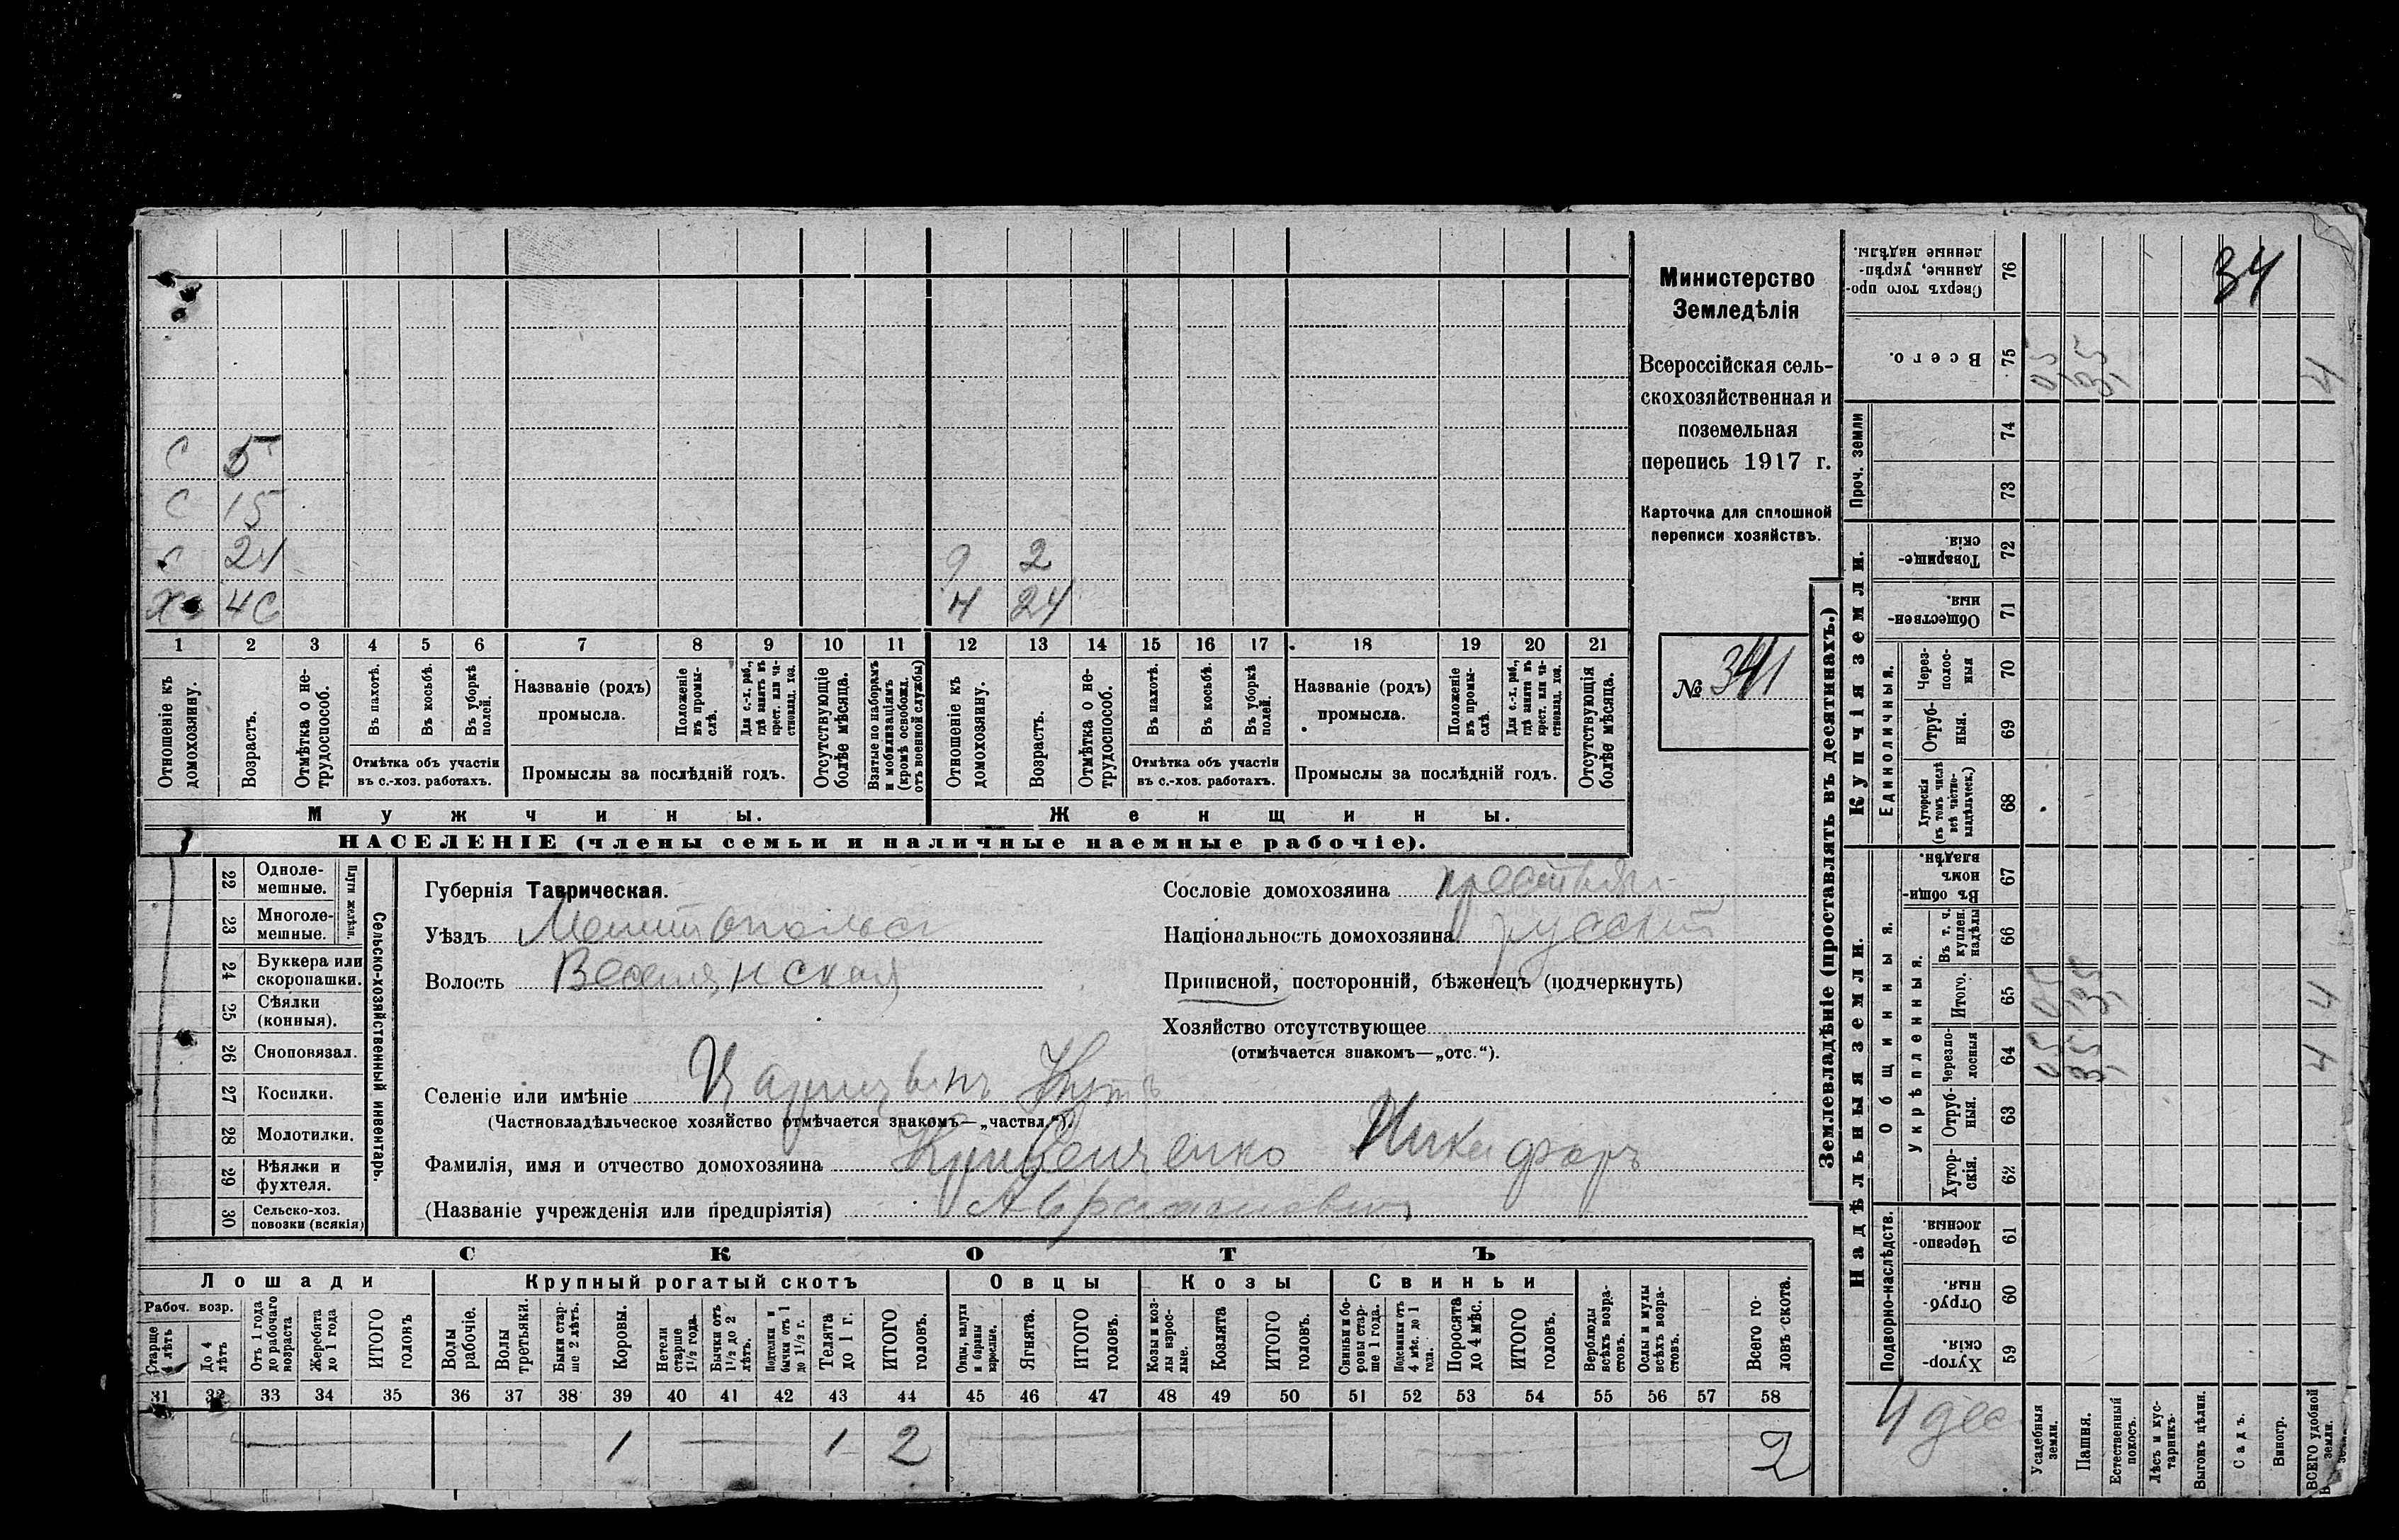 С 5
С 15
С 24 9 2
Х 46 Н 24
1 2 3 4 5 6 7 8 9 10 11 12 13 14 15 16 17 18 19 20 21
Отношеніе къ домохозяину.
Возрастъ.
Отмѣтка о не-трудоспособ.
Въ пахотѣ.
Въ косьбѣ.
Въ уборкѣ полей.
Отмѣтка объ участіи
въ с.-хоз. работахъ.
Названіе (родъ)
промысла.
Положеніе въ промы-слѣ.
Для с.-х. раб., гдѣ занятъ въ крест. или ча-стновлад. хоз.
Промыслы за послѣдній годъ.
Отсутствующіе болѣе мѣсяца.
Взятые по наборамъ и мобилизаціямъ (кромѣ освобожд. отъ военной службы)
Отношеніе къ домохозяину.
Возрастъ.
Отмѣтка о не-трудоспособ.
Въ пахотѣ.
Въ косьбѣ.
Въ уборкѣ полей.
Отмѣтка объ участіи
въ с.-хоз. работахъ.
Названіе (родъ)
промысла.
Положеніе въ промы-слѣ.
Для с.-х. раб., гдѣ занята въ крест. или ча-стновлад. хоз.
Промыслы за послѣдній годъ.
Отсутствующія болѣе мѣсяца.
Мужчины. Женщины.
НАСЕЛЕНІЕ (члены семьи и наличные наемные рабочіе).
Министерство
Земледѣлія
Всероссійская сель-
скохозяйственная и
поземельная
перепись 1917 г.
Карточка для сплошной
переписи хозяйствъ.
№ 341
22 Одноле-мешные.
23 Многоле-мешные.
Плуги желѣзн.
24 Буккера или скоропашки.
25 Сѣялки (конныя).
26 Сноповязал.
27 Косилки.
28 Молотилки.
29 Вѣялки и фухтеля.
30 Сельско-хоз. повозки (всякія)
Сельско-хозяйственный инвентарь.
Губернія Таврическая.
Уѣздъ Мелитопольс
Волость
Селеніе или имѣніе Царицынъ Кутъ
(Частновладѣльческое хозяйство отмѣчается знакомъ—„частвл.“).
Фамилія, имя и отчество домохозяина Никифоръ
(Названіе учрежденія или предпріятія) Аврамовичъ
Сословіе домохозяина
Національность домохозяина русскій
Приписной, посторонній, бѣженецъ (подчеркнуть)
Хозяйство отсутствующее
(отмѣчается знакомъ—„отс.“).
СКОТЪ
Лошади Крупный рогатый скотъ Овцы Козы Свиньи
Рабоч. возр.
Старше 4 лѣтъ
До 4 лѣтъ
Отъ 1 года до рабочаго возраста
Жеребята до 1 года
ИТОГО головъ
Волы рабочіе.
Волы третьяки.
Быки стар-ше 2 лѣтъ.
Коровы.
Нетели старше 1½ года.
Бычки отъ 1½ до 2 лѣтъ.
Подтелки и бычки отъ 1 до 1½ г.
Телята до 1 г.
ИТОГО головъ.
Овцы, валухи и бараны взрослые.
Ягнята.
ИТОГО головъ.
Козы и коз-лы взрос-лые.
Козлята
ИТОГО головъ.
Свиньи и бо-ровы стар-ше 1 года.
Подсвинки отъ 4 мѣс. до 1 года.
Поросята до 4 мѣс.
ИТОГО головъ.
Верблюды всѣхъ возра-стовъ.
Ослы и мулы всѣхъ возра-стовъ.
Всего го-ловъ скота.
31 32 33 34 35 36 37 38 39 40 41 42 43 44 45 46 47 48 49 50 51 52 53 54 55 56 57 58
1 1 2 2
Землевладѣніе (проставлять въ десятинахъ.)
34
Сверхъ того про-данные, укрѣп-ленные надѣлы. 76
Всего. 75 0,5 3,5 4
Проч. земли 74
73
Купчія земли.
Товарище-скія. 72
Обществен-ныя. 71
Единоличныя.
Через-полос-ныя 70
Отруб-ныя. 69
Хуторскія (въ томъ числѣ всѣ частно-владѣльческ.) 68
Надѣльныя земли.
Общинныя.
Въ общи-номъ владѣн. 67
Укрѣпленныя.
Въ т. ч. куплен. надѣлы 66
Итого. 65 0,5 3,5 4
Черезпо-лосныя 64 0,5 3,5 4
Отруб-ныя. 63
Хутор-скія. 62
Подворно-наслѣдств.
Черезпо-лосныя. 61
Отруб-ныя. 60
Хутор-скія. 59
4 дес
Усадебныя земли.
Пашня.
Естественный покосъ.
Лѣсъ и кус-тарникъ.
Выгонъ цѣлин.
Садъ.
Виногр.
ВСЕГО удобной земли.